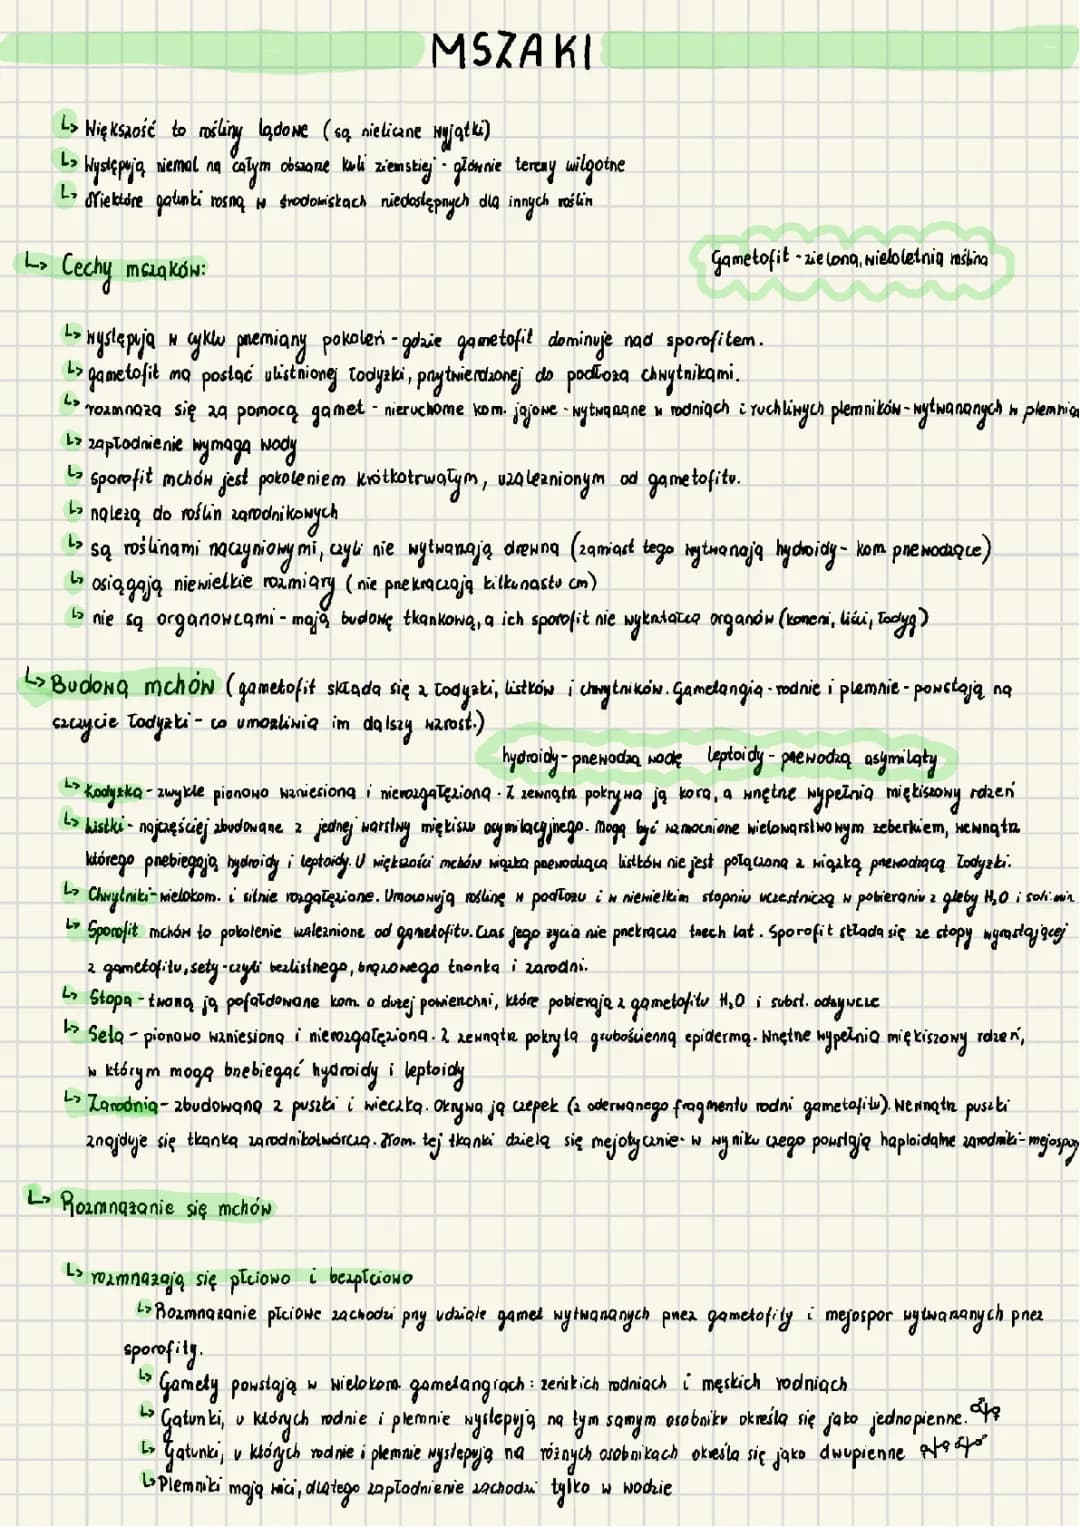 MSZAKI
↳ Większość to rośliny lądowe (są nieliczne wyjątki)
↳ Występują niemal na całym obszarze kuli ziemskiej - głównie tereny wilgotne
↳ Niektóre gatunki rosną w środowiskach niedostępnych dla innych roślin
↳ Cechy mszaków:
Gametofit - zielona, wieloletnia roślina
↳ występują w cyklu przemiany pokoleń - gdzie gametofit dominuje nad sporofitem.
↳ gametofit ma postać ulistnionej łodyżki, przytwierdzonej do podłoża chwytnikami.
↳ rozmnaża się za pomocą gamet - nieruchome kom. jajowe - wytwarzane w rodniach i ruchliwych plemników - wytwarzanych w plemnia
↳ zapłodnienie wymaga wody
↳ sporofit mchów jest pokoleniem krótkotrwałym, uzależnionym od gametofitu.
↳ należą do roślin zarodnikowych
↳ są roślinami naczyniowymi, czyli nie wytwarzają drewna (zamiast tego wytwarzają hydroidy - kom przewodzące)
↳ osiągają niewielkie rozmiary (nie przekraczają kilkunastu cm)
↳ nie są organowcami - mają budowę tkankową, a ich sporofit nie wykształca organów (korzeni, liści, łodyg)
↳ Budowa mchów (gametofit składa się z łodyżki, listków i chwytników. Gametangia - rodnie i plemnie - powstają na
szczycie łodyżki - co umożliwia im dalszy wzrost.)
hydroidy - przewodzą wodę leptoidy - przewodzą asymilaty
↳ Łodyżka - zwykle pionowo wzniesiona i nierozgałęziona. Z zewnątrz pokrywa ją kora, a wnętrze wypełnia miękiszowy rdzeń
↳ Listki - najczęściej zbudowane z jednej warstwy miękiszu asymilacyjnego. Mogą być wzmocnione wielowarstwowym żeberkiem, wewnątrz
którego przebiegają hydroidy i leptoidy. U większości mchów wiązka przewodząca listków nie jest połączona z wiązką przewodzącą łodyżki.
↳ Chwytniki - wielokom. i silnie rozgałęzione. Umocowują roślinę w podłożu i w niewielkim stopniu uczestniczą w pobieraniu z gleby H₂O i soli min
↳ Sporofit mchów to pokolenie uzależnione od gametofitu. Czas jego życia nie przekracza trzech lat. Sporofit składa się ze stopy wyrastającej
z gametofitu, sety - czyli bezlistnego, brązowego trzonka i zarodni.
↳ Stopa - tworzą ją pofałdowane kom. o dużej powierzchni, które pobierają z gametofitu H₂O i subst. odżywcze
↳ Seta - pionowo wzniesiona i nierozgałęziona. Z zewnątrz pokryta grubościenną epidermą. Wnętrze wypełnia miękiszowy rdzeń,
w którym mogą bnebiegać hydroidy i leptoidy
↳ Zarodnia - zbudowana z puszki i wieczka. Okrywa ją czepek (z oderwanego fragmentu rodni gametofitu). Wewnątrz puszki
znajduje się tkanka zarodnikotwórcza. Kom. tej tkanki dzielą się mejotycznie - w wyniku czego powstają haploidalne zarodniki - mejospory
↳ Rozmnażanie się mchów
↳ rozmnażają się płciowo i bezpłciowo
↳ Rozmnażanie płciowe zachodzi przy udziale gamet wytwarzanych przez gametofity i mejospor wytwarzanych przez
sporofity.
↳ Gamety powstają w wielokom. gametangiach: żeńskich rodniach i męskich rodniach
↳ Gatunki, u których rodnie i plemnie występują na tym samym osobniku określa się jako jednopienne.
↳ Gatunki, u których rodnie i plemnie występują na różnych osobnikach określa się jako dwupienne
↳ Plemniki mają wici, dlatego zapłodnienie zachodzi tylko w wodzie